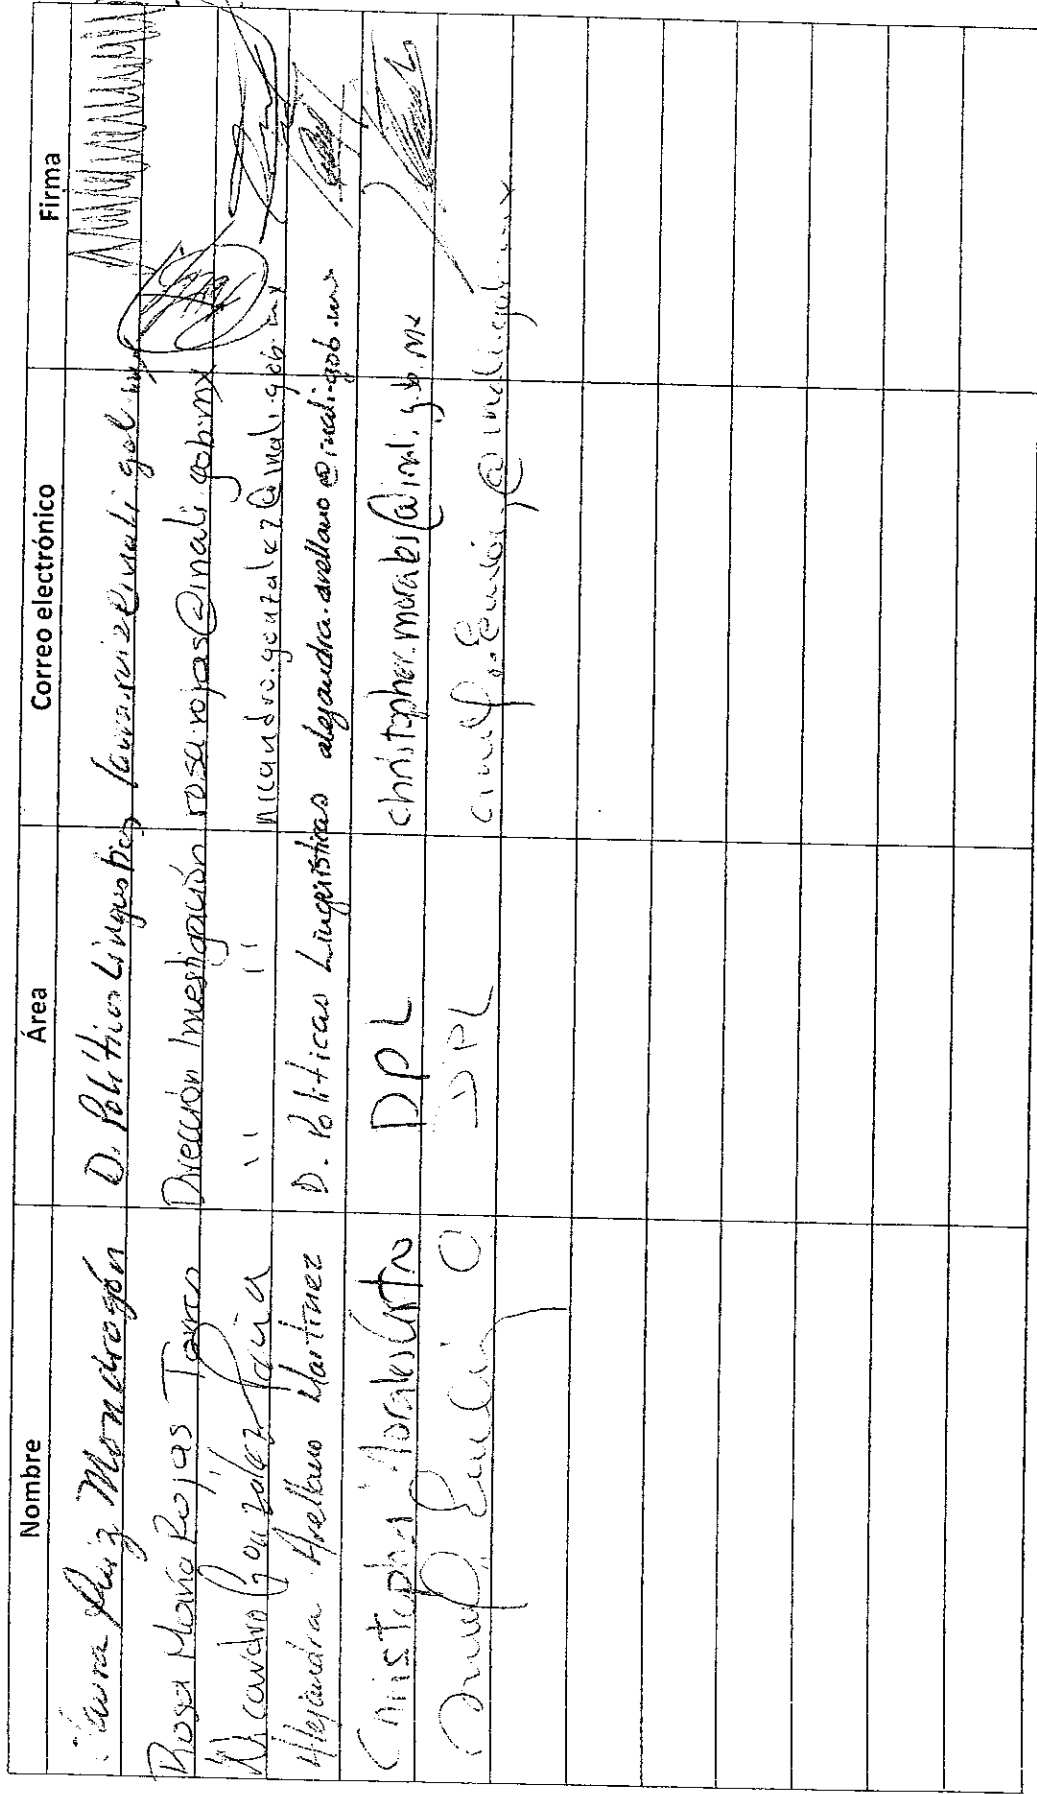 Nombre Área Correo electrónico Firma
Laura Ruiz Mondragón D. Políticas Lingüísticas laura.ruiz@inali.gob.mx
Rosa María Rojas Torres Dirección Investigación rosa.rojas@inali.gob.mx
Nicandro González Peña " " nicandro.gonzalez@inali.gob.mx
Alejandra Arellano Martínez D. Políticas Lingüísticas alejandra.arellano@inali.gob.mx
Christopher Morales Castro DPL christopher.morales@inali.gob.mx
DPL @inali.gob.mx